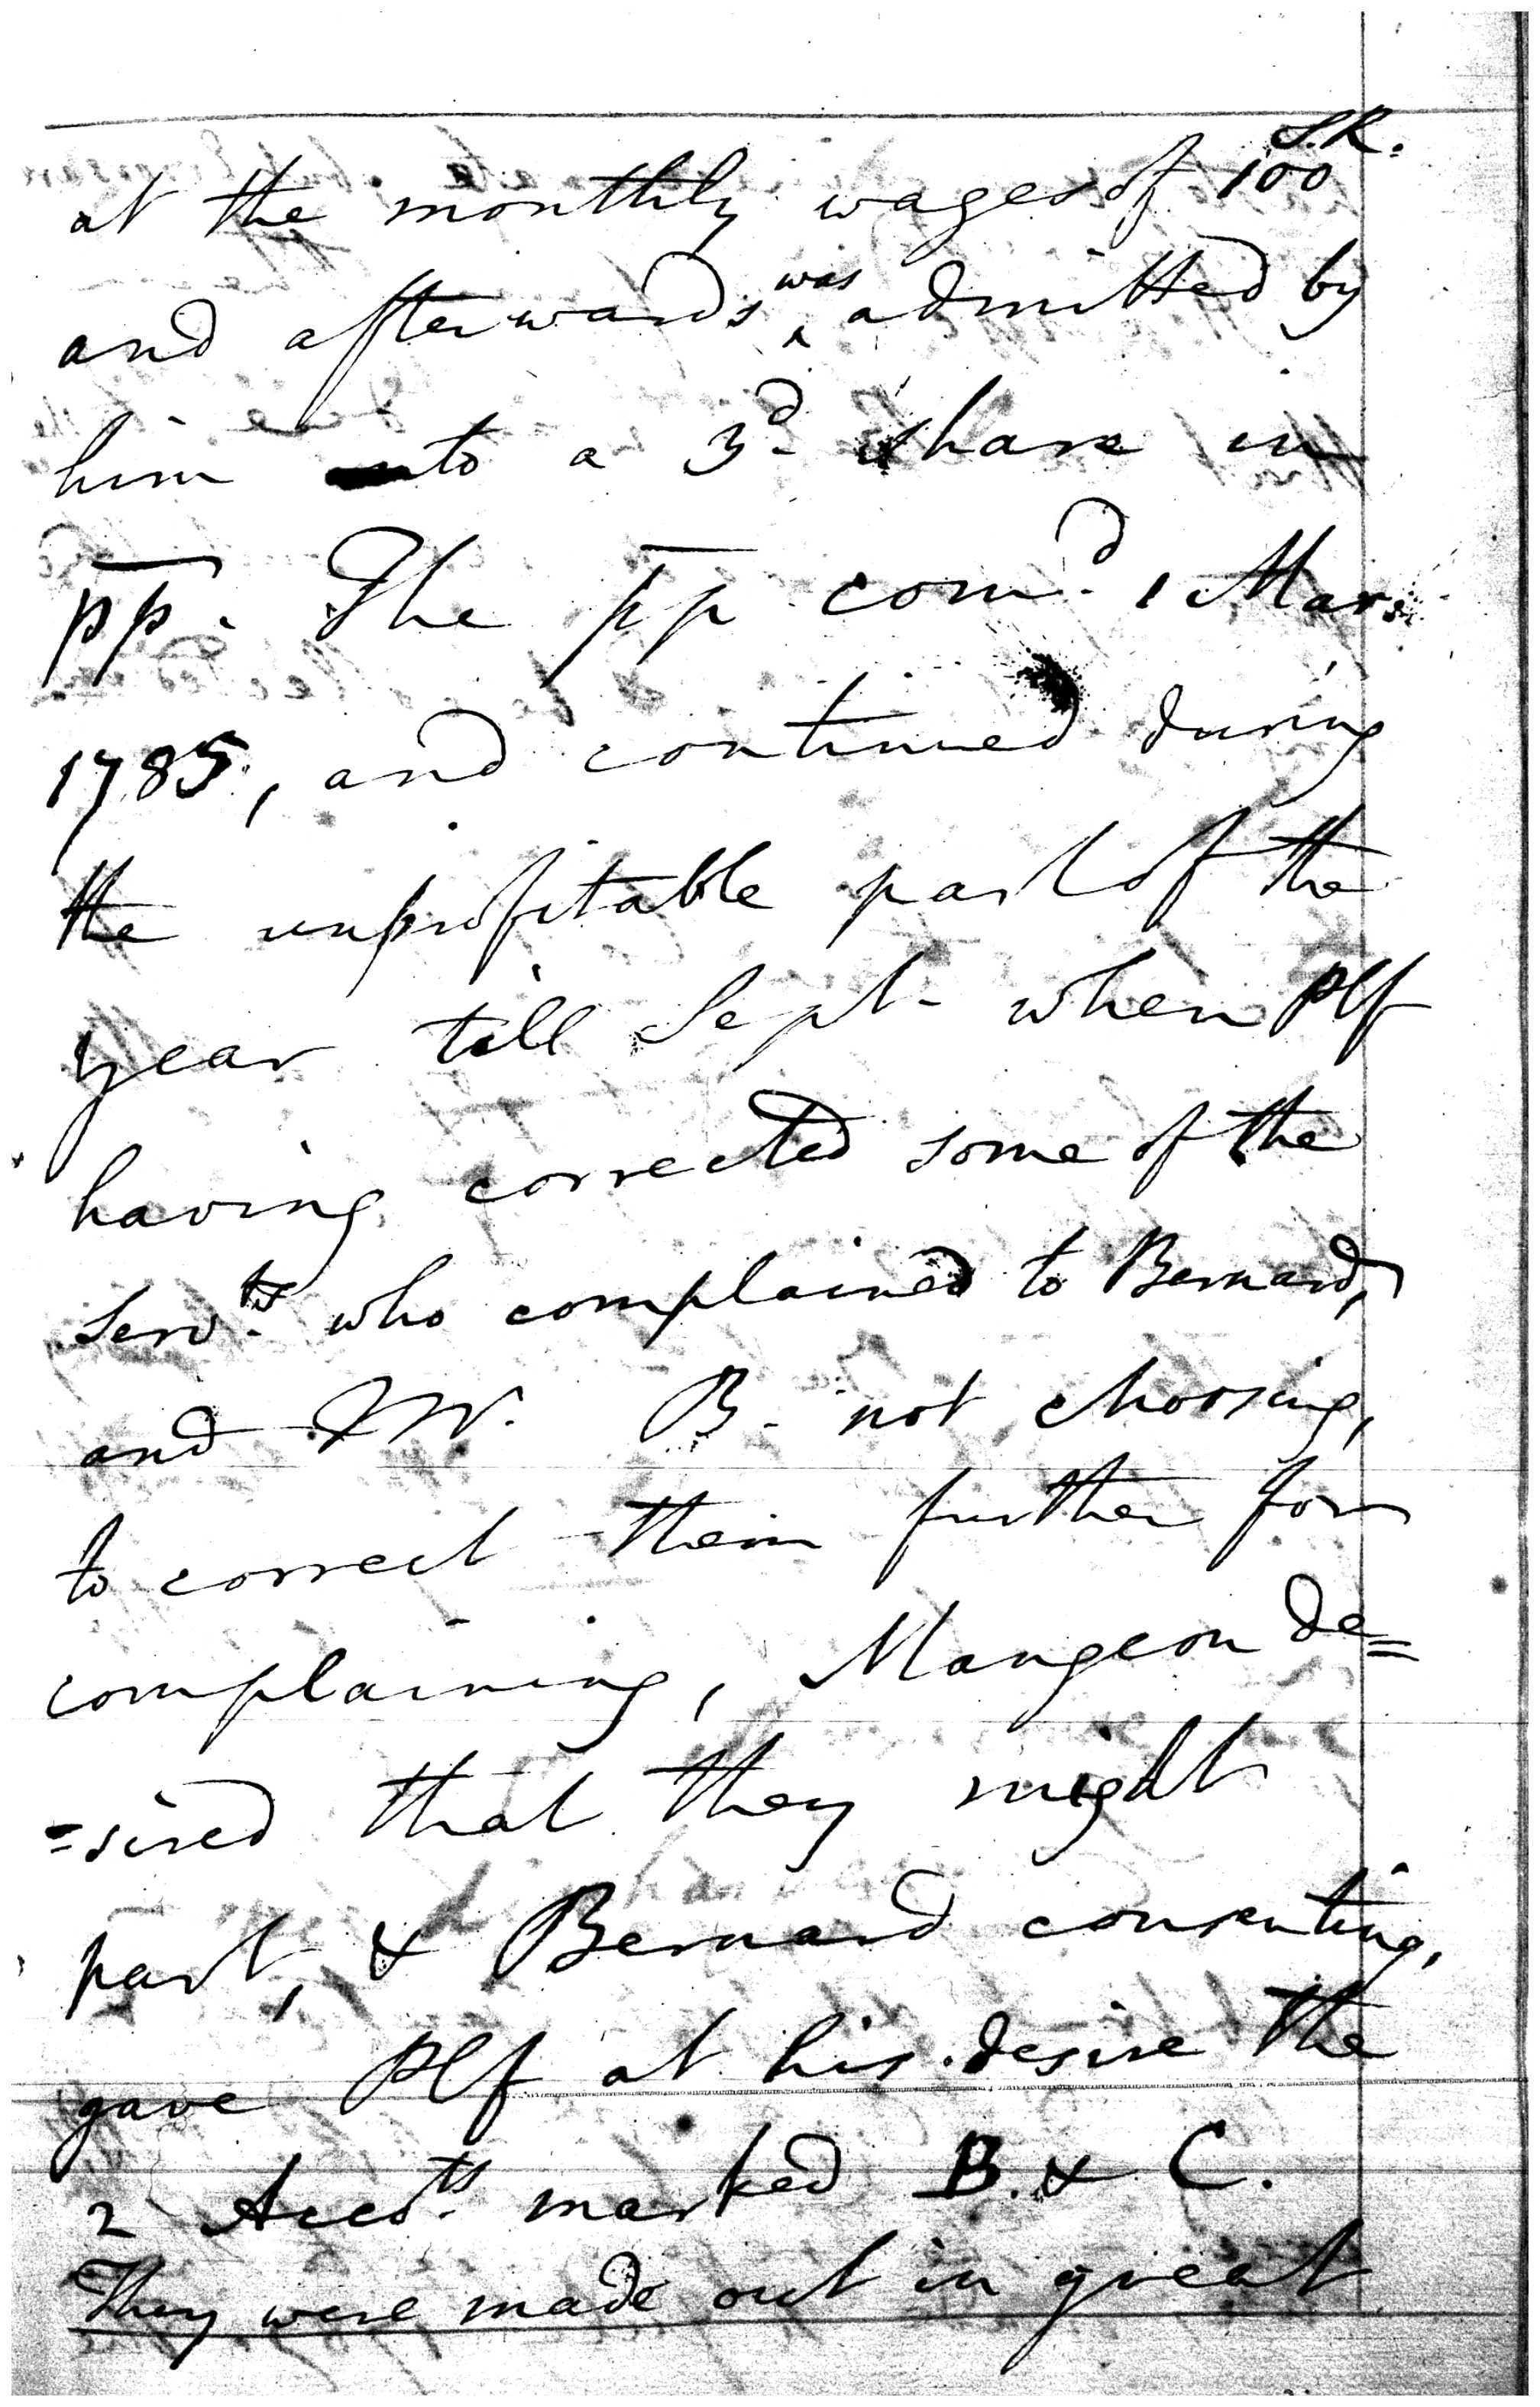 at the monthly wages of 100 S.R.
and afterwards was admitted by
him to a 3d share in
pp. The pp com.d 1 Mar.
1785, and continued during
the unprofitable part of the
year till Sept. when Plf
having corrected some of the
Serv.ts who complained to Bernard,
and B. not choosing,
to correct them further for
complaining, Mangeon de=
=sired that they might
part, & Bernard consenting,
gave Plf at his desire the
2 Acco.ts marked B. & C.
They were made out in great